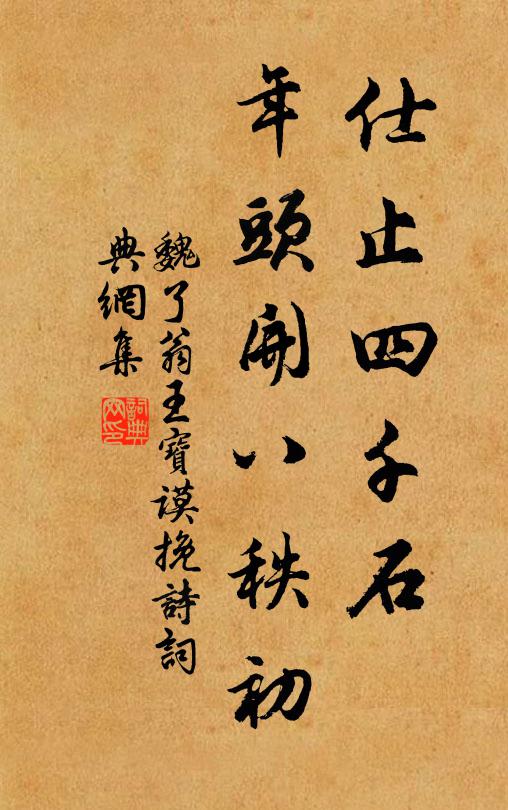 仕止四千石
年頭開八秩初
魏了翁王寶謨挽詩詞
典網集
詞典網印